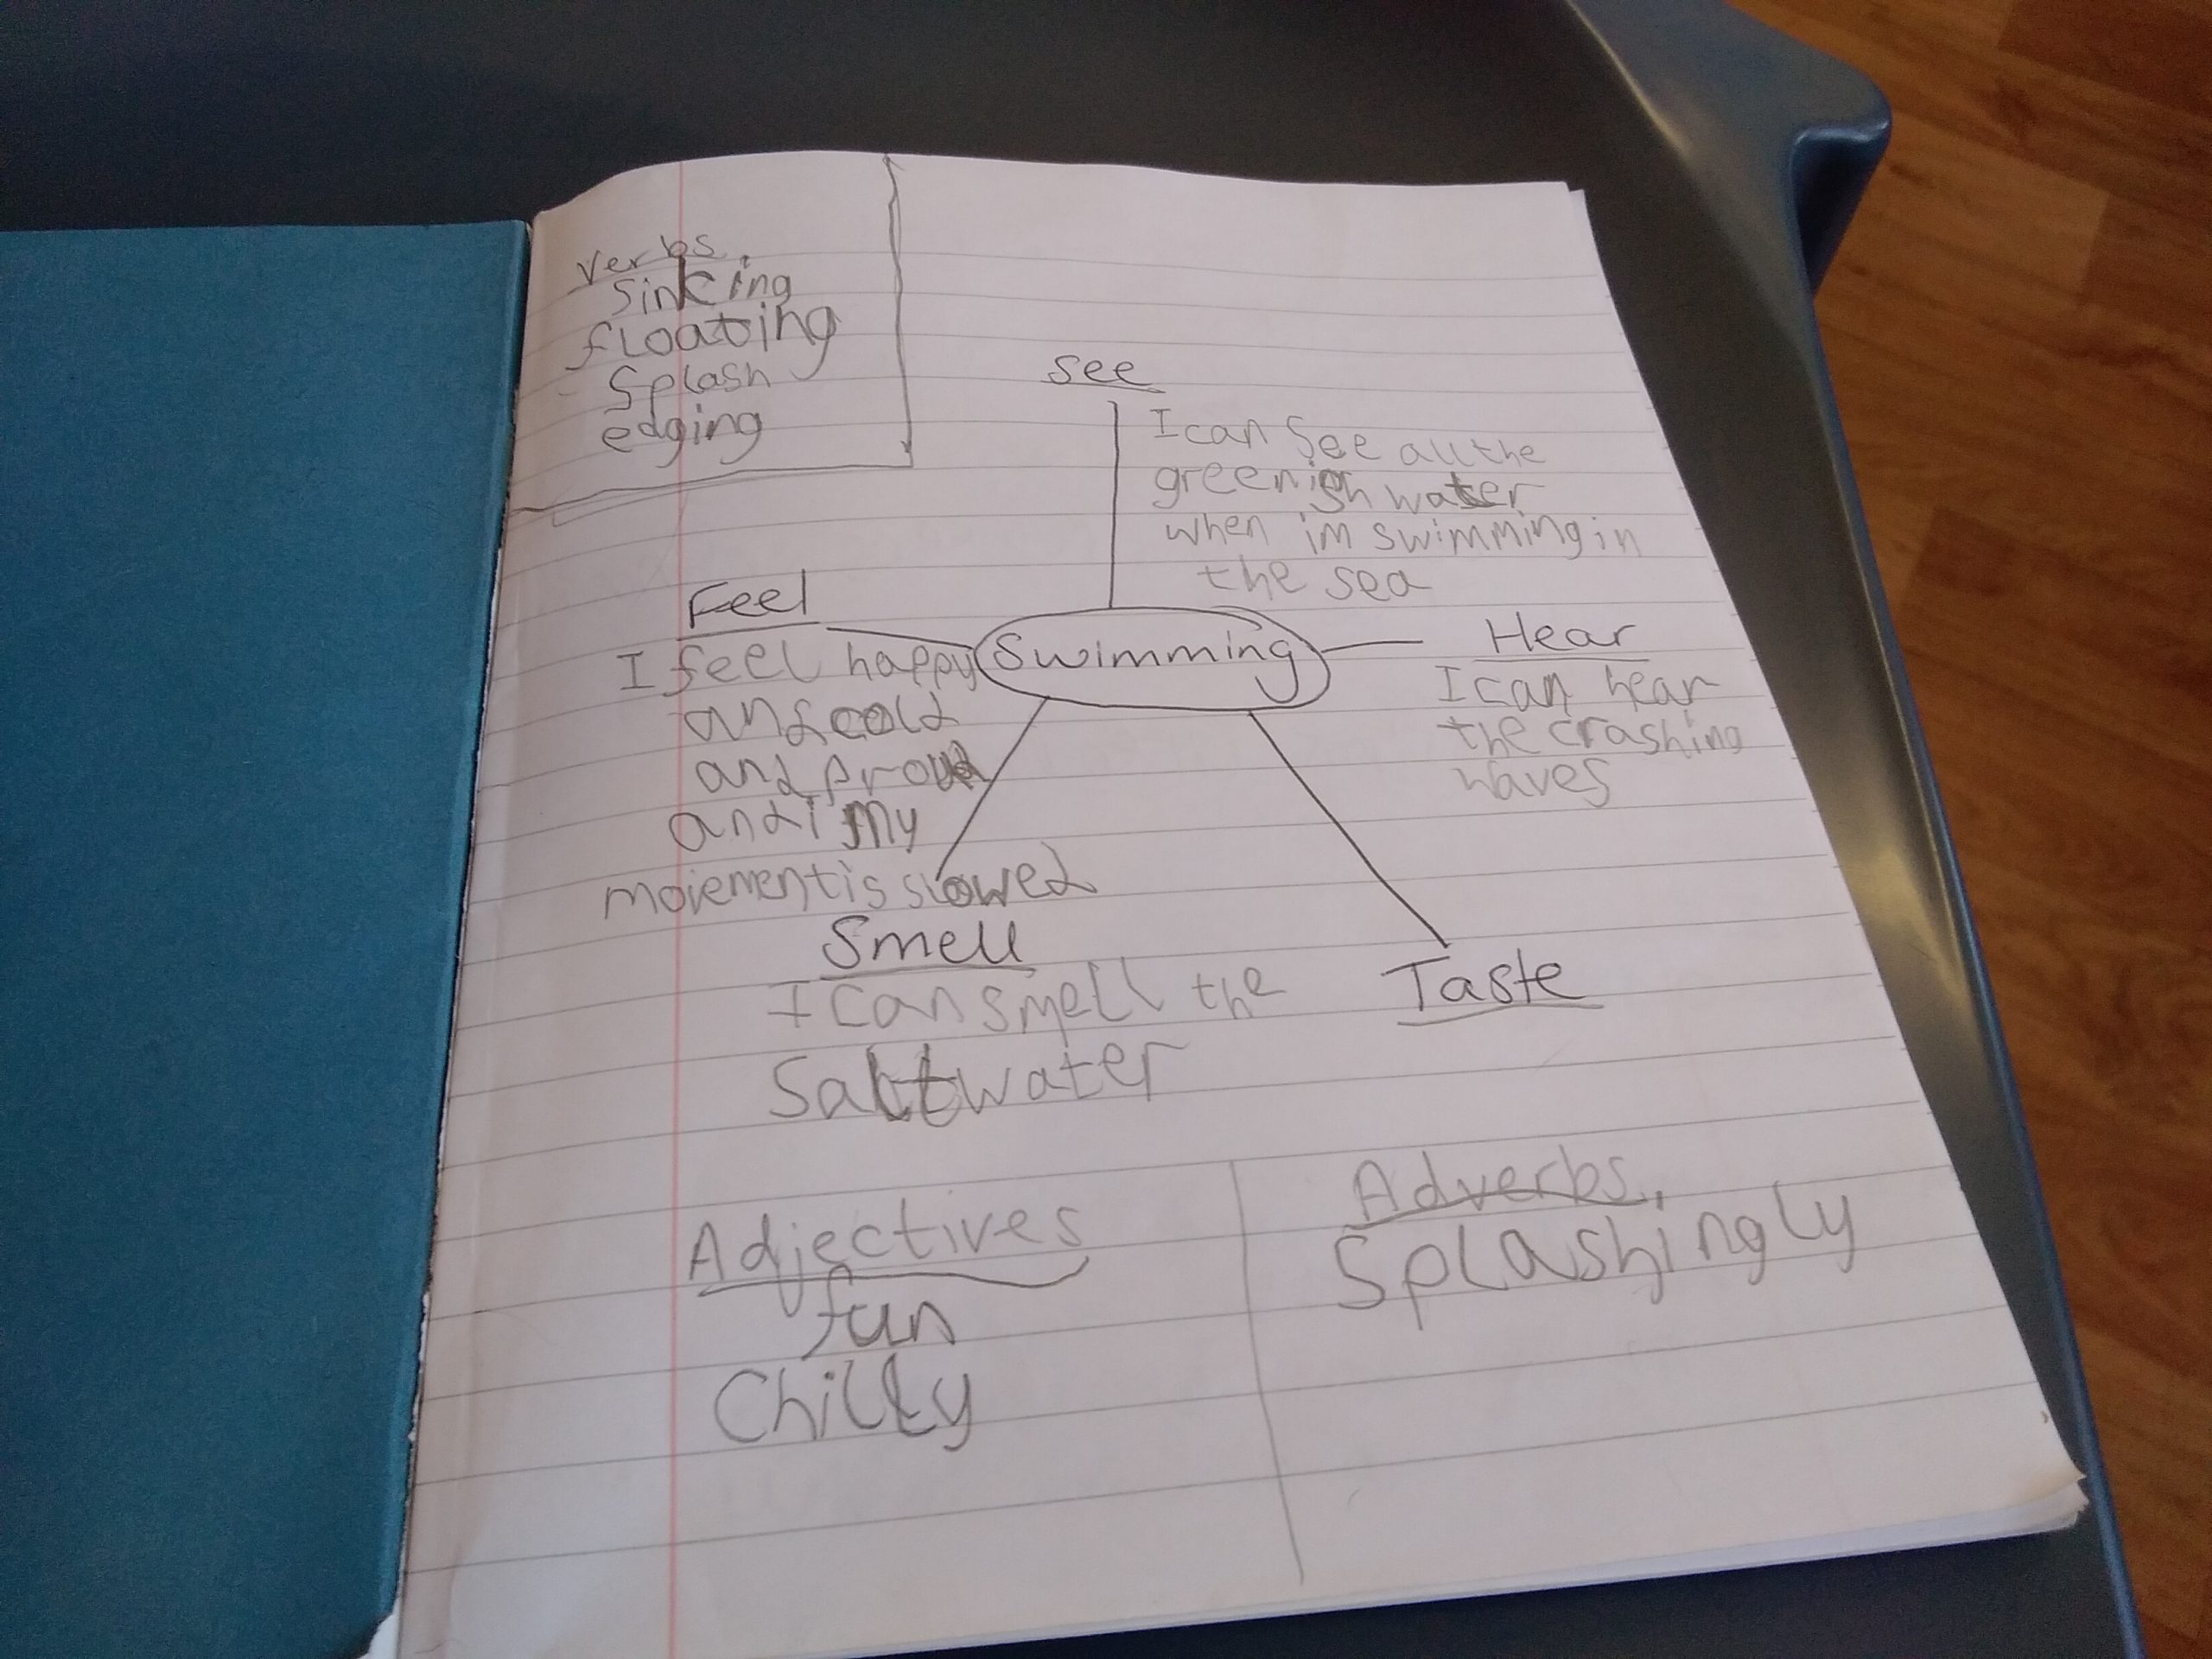 Verbs
Sinking
floating
Splash
edging
See
I can See all the
greenish water
when im swimming in
the sea
Feel
I feel happy
and cold
and proud
and my
movement is slowed
Swimming
Hear
I can hear
the crashing
waves
Smell
I can smell the
Saltwater
Taste
Adjectives
fun
Chilly
Adverbs
Splashingly